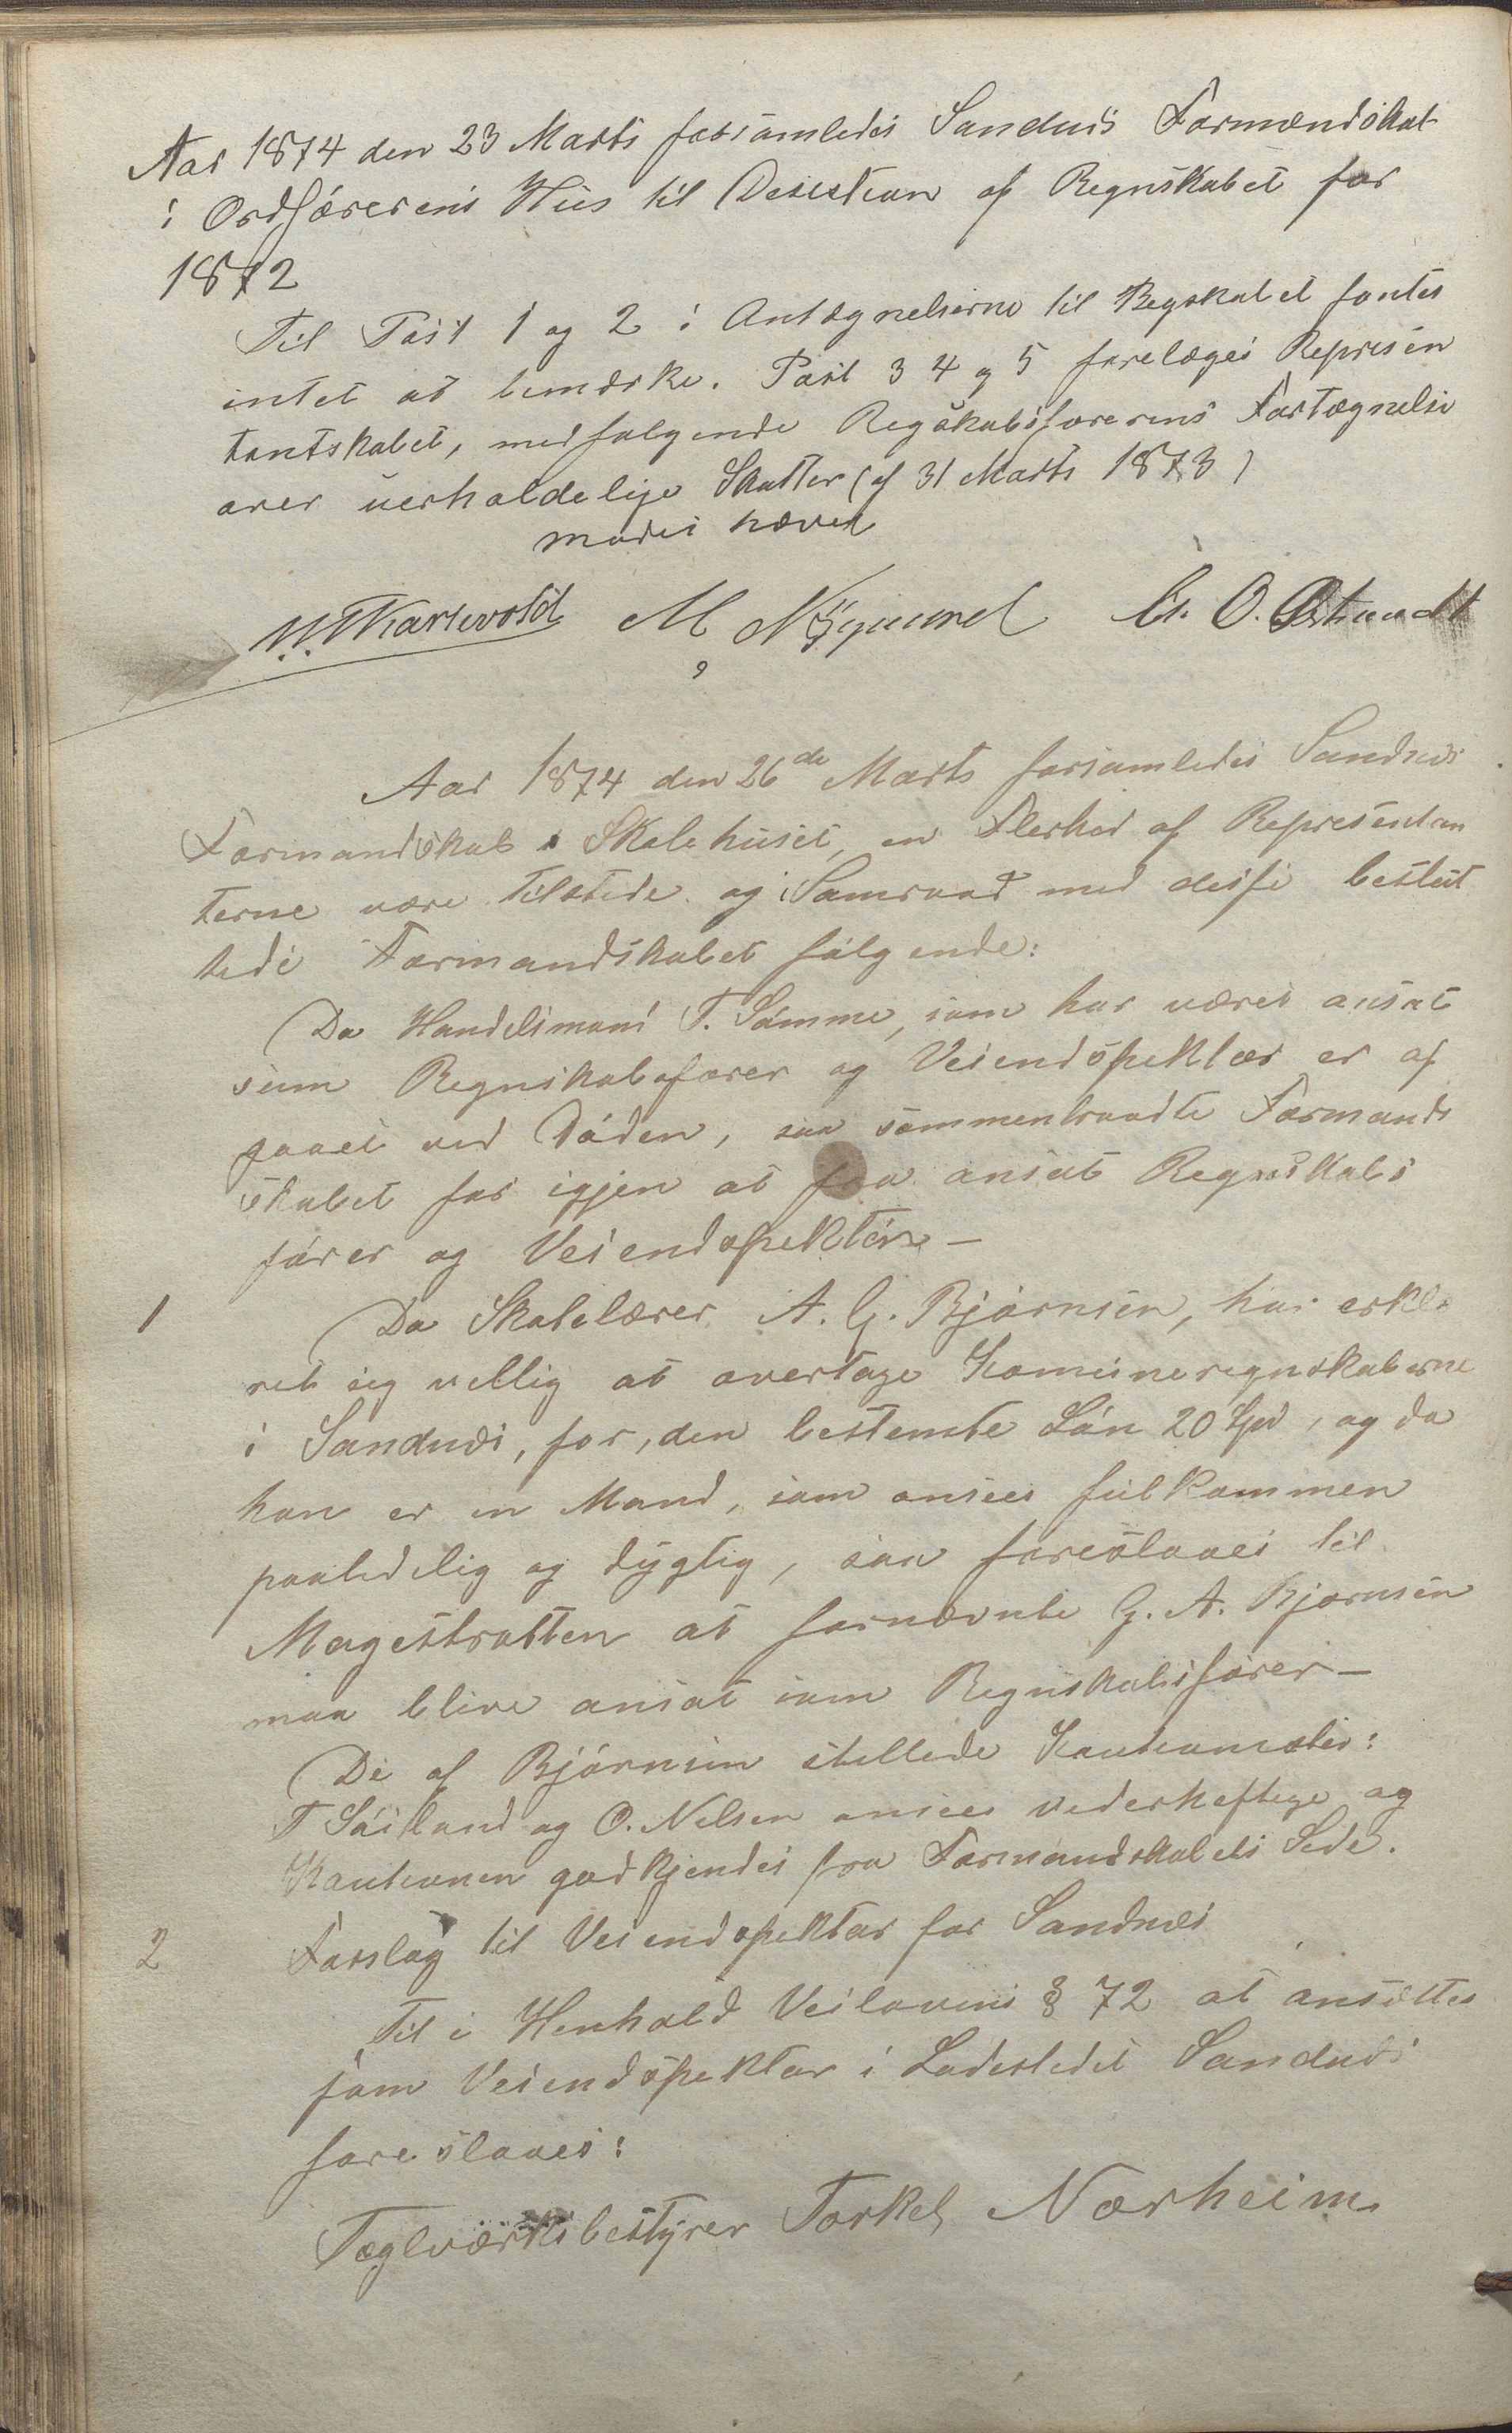 Aar 1874 den 23 Marts forsamledes Sandnæs Formændskab
i Ordförerens Hus til Desistion af Regnskabet for
1872
Til Post 1 og 2 i Antægnelserne til Regskabet fantes
intet at bemærke. Post 3 4 og 5 forelæges Represen
tantskabet, medfølgende Regskabsførerens Fortægnelse
over uerholdelige Skatter (af 31 Marts 1873)
mødet hævet
M. Nÿgaard
Aar 1874 den 26de Marts forsamledes Sandnæs
Formandskab i Skolehuset, en Flerhed af Representan
terne være tilstede og i Samraad med disse beslut
tede Formandskabet følgende:
Da Handelsmand T. Sömme, som har været ansat
som Regnskabsfører og Veiendspektør er af
gaaet ved Döden, saa sammentraadte Formands
skabet for igjen at faa ansat Regnskabs
förer og Veiendspektör –
1 Da Skolelærer A. G. Bjørnsen, har erklæ
ret sig vellig at overtage Komuneregnskaberne
i Sandnæs, for, den bestemte Lön 20 Spd, og da
han er en Mand, som ansees fulkommen
paaledelig og dÿgtig, saa foreslaaes til
Magestratten at fornævnte G. A. Bjørnsen
maa blive ansat som Regnskabsförer –
De af Björnsen stillede Kautionister:
T Söiland og O. Nelsen ansees vederheftege og
Kautionen godkjendes fra Formandskabets Side.
2 Forslag til Veiendspektør for Sandnæs
Til i Henhold Veilovens § 72 at ansættes
som Veiendspektør i Ladestedet Sandnæs
foreslaaes:
Teglværksbestÿrer Torkel Nærheim